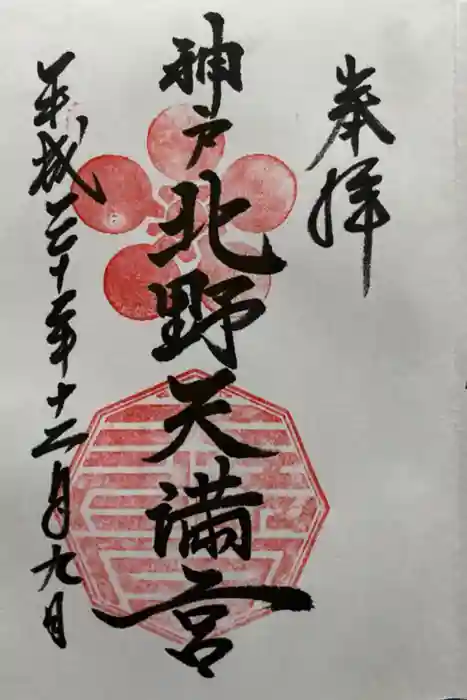 奉拝
神戸北野天満宮
平成三十年十二月九日